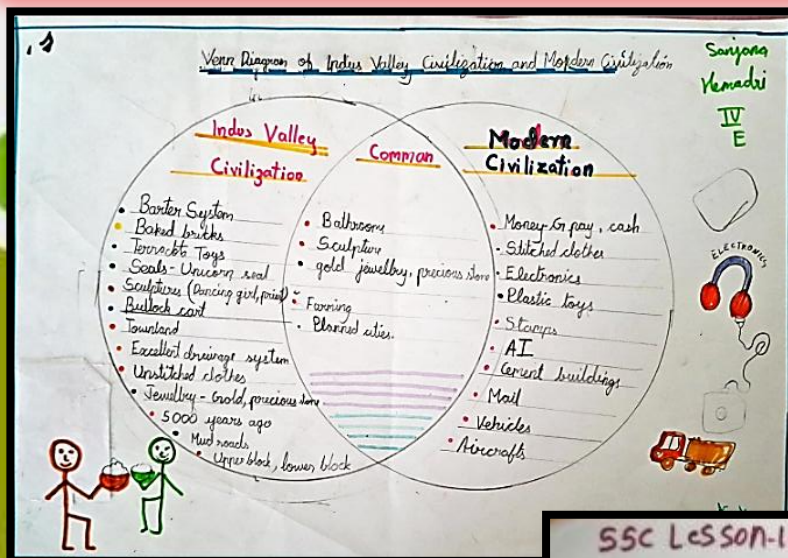 Venn Diagram of Indus Valley Civilization and Mordern Civilization
Sanjana
Hemadri
IV
E
Indus Valley
Civilization
Barter System
Baked bricks
Terracota Toys
Seals - Unicorn seal
Sculptures (Dancing girl, priest)
Bullock cart
Townland
Excellent drainage system
Unstitched clothes
Jewellry - Gold, precious stone
5000 years ago
Mud roads
Upper block, lower block
Comman
Bathrooms
Sculpture
gold jewellry, precious stone
Farming
Planned cities.
Modern
Civilization
Money - G pay, cash
Stitched clothes
Electronics
Plastic toys
Stamps
AI
Cement buildings
Mail
Vehicles
Aircrafts
ELECTRONICS
SSC LeSSon-1